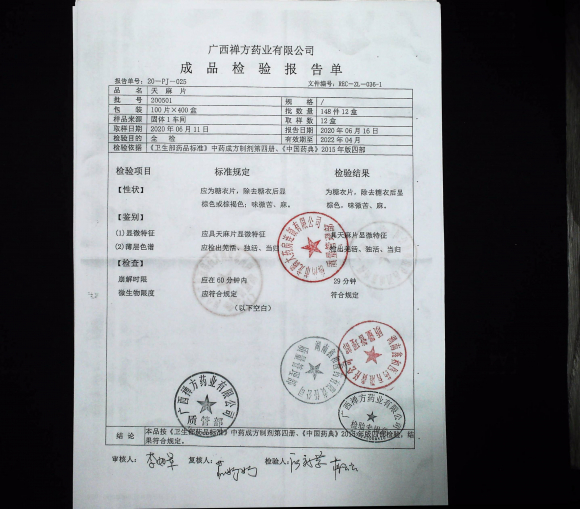 广西禅方药业有限公司
成品检验报告单
报告单号：20—PJ—025 文件编号：REC—ZL—036-1
品名 天麻片
批号 200501 规格 /
包装 100片×400盒 批数量 148件12盒
样品来源 固体1车间 取样数 12盒
取样日期 2020年06月11日 报告日期 2020年06月16日
检验目的 全检 有效期至 2022年04月
检验依据 《卫生部药品标准》中药成方制剂第四册、《中国药典》2015年版四部
检验项目 标准规定 检验结果
【性状】 应为糖衣片，除去糖衣后显 为糖衣片，除去糖衣后显
棕色或棕褐色；味微苦、麻。 棕色，味微苦、麻。
【鉴别】
(1)显微特征 应具天麻片显微特征 具天麻片显微特征
(2)薄层色谱 应检出羌活、独活、当归 检出羌活、独活、当归
【检查】
崩解时限 应在60分钟内 29分钟
微生物限度 应符合规定 符合规定
（以下空白）
广西禅方药业有限公司
质管部
结论 本品按《卫生部药品标准》中药成方制剂第四册、《中国药典》2015年版四部检验，结
果符合规定。
审核人： 复核人： 检验人：